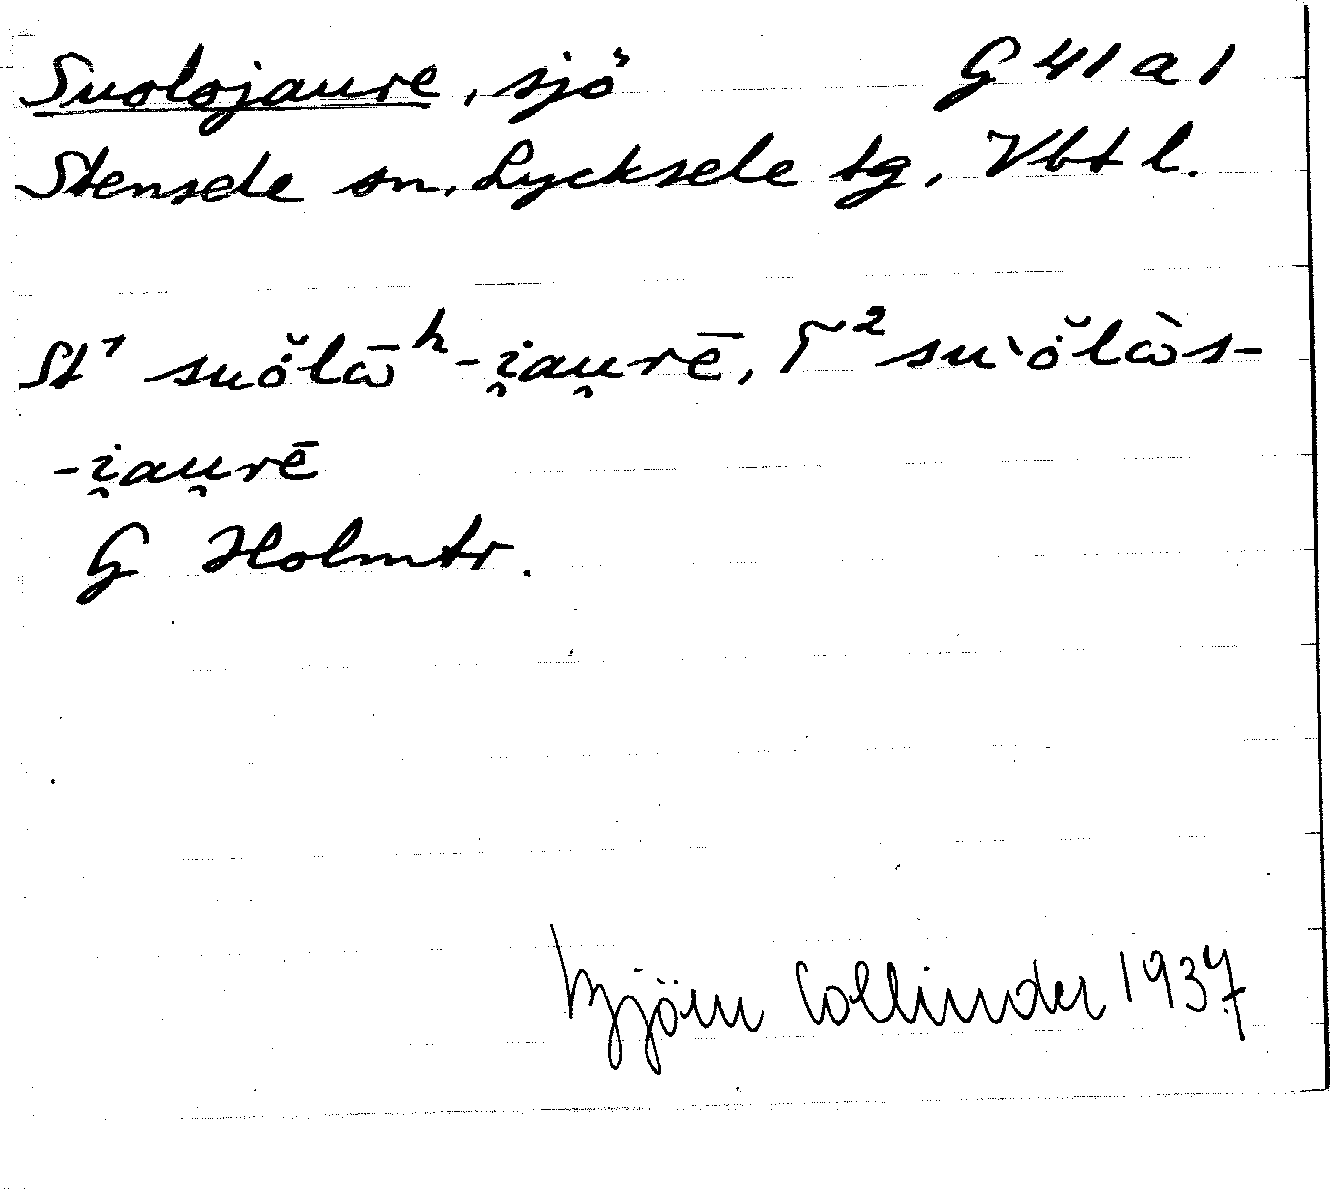 Suolojaure, sjö G 41 a 1
Stensele sn. Lycksele tg, Vbt l.
St¹ suŏ̇lω̄ʰ-i̯au̯rē, T² su`ŏ̇lὼs-
-i̯au̯rē
G Holmtr.
Björn Collinder 1937